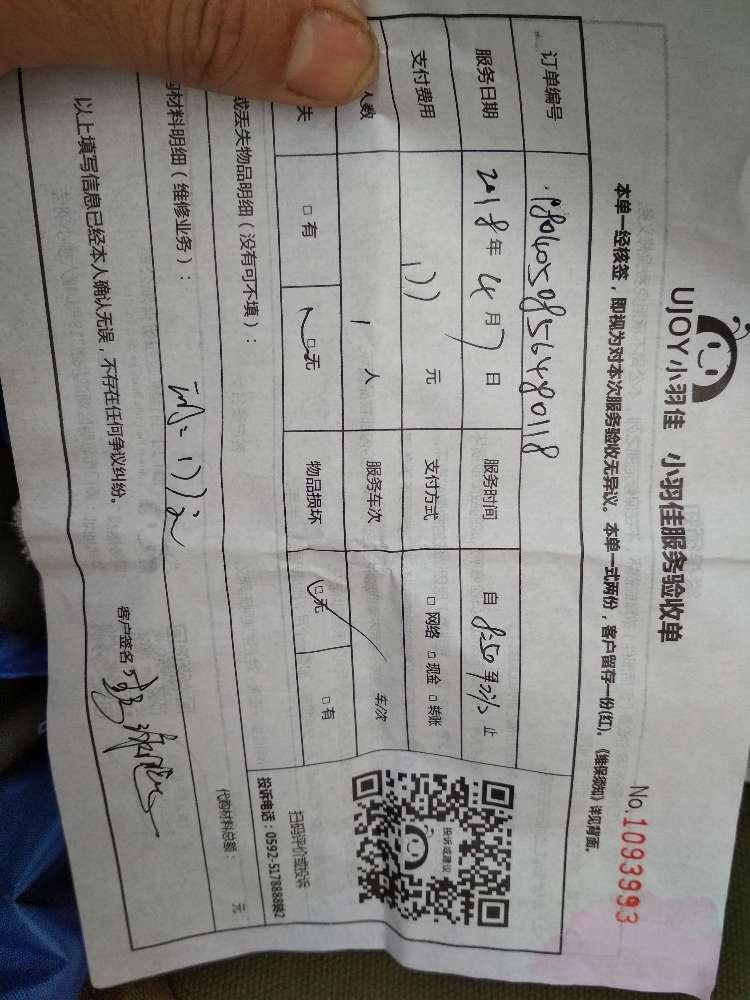 UJOY小羽佳 小羽佳服务验收单
No.1093993
本单一经核签，即视为对本次服务验收无异议。本单一式两份，客户留存一份(红)。《维保须知》详见背面。
订单编号 180405085648018
服务日期 2018年4月7日 服务时间 自 8:50 至 止
支付费用 元 支付方式 □网络 □现金 □转账
人数 1人 服务车次 车/次
失 □有 □无 物品损坏 □无 □有
或丢失物品明细（没有可不填）：
材料明细（维修业务）：
代购材料总额： 元
以上填写信息已经本人确认无误，不存在任何争议纠纷。
客户签名：
投诉或建议
扫码评价或投诉
投诉电话：0592-5178888转2